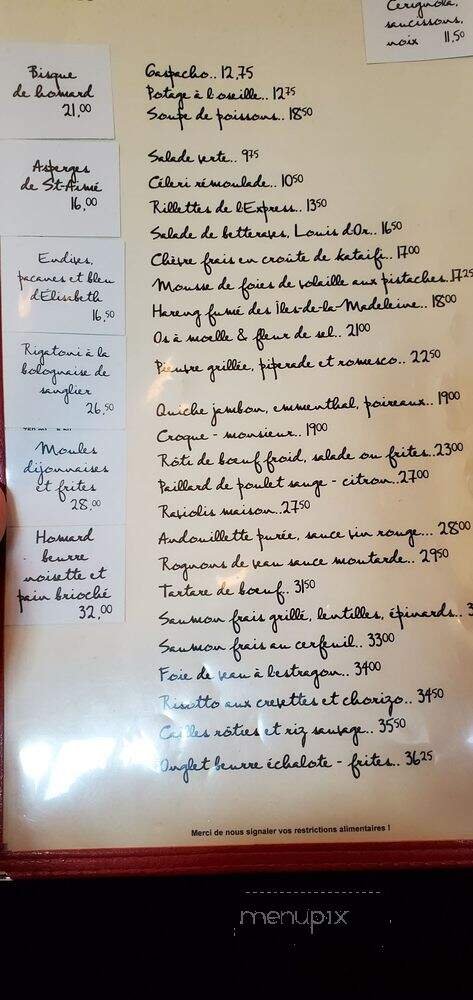 Cerignola,
saucissons,
noix 11,50
Bisque
de homard
21,00
Asperges
de St-Aimé
16,00
Endives,
pacanes et bleu
d'Élisabeth
16,50
Rigatoni à la
bolognaise de
sanglier
26,50
Moules
dijonnaises
et frites
28,00
Homard
beurre
noisette et
pain brioché
32,00
Gaspacho.. 12,75
Potage à l'oseille.. 12 75
Soupe de poissons.. 18 50
Salade verte.. 9 75
Céleri rémoulade.. 10 50
Rillettes de l'Express.. 13 50
Salade de betteraves, Louis d'Or.. 16 50
Chèvre frais en croûte de kataifi.. 17 00
Mousse de foies de volaille aux pistaches..17 25
Hareng fumé des Îles-de-la-Madeleine.. 18 00
Os à moelle & fleur de sel.. 21 00
Pieuvre grillée, piperade et romesco.. 22 50
Quiche jambon, emmenthal, poireaux.. 19 00
Croque - monsieur.. 19 00
Rôti de bœuf froid, salade ou frites..23 00
Paillard de poulet sauge - citron..27 00
Raviolis maison..27 50
Andouillette purée, sauce vin rouge... 28 00
Rognons de veau sauce moutarde.. 29 50
Tartare de bœuf.. 31 50
Saumon frais grillé, lentilles, épinards..
Saumon frais au cerfeuil.. 33 00
Foie de veau à l'estragon.. 34 00
Risotto aux crevettes et chorizo.. 34 50
Cailles rôties et riz sauvage.. 35 50
Onglet beurre échalote - frites.. 36 25
Merci de nous signaler vos restrictions alimentaires !
menupix